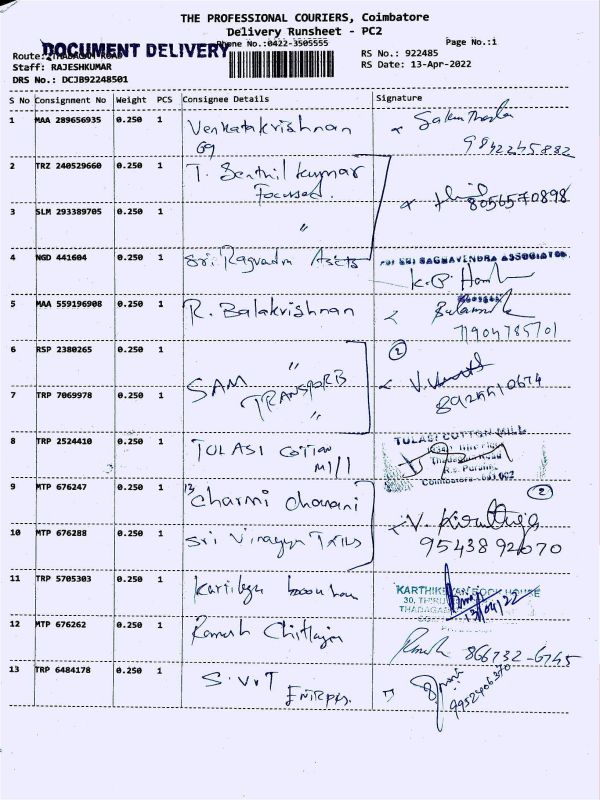 THE PROFESSIONAL COURIERS, Coimbatore
Delivery Runsheet - PC2
Phone No.:0422-3505555
Page No.:1
DOCUMENT DELIVERY
Route: THADAGAM ROAD
RS No.: 922485
Staff: RAJESHKUMAR
RS Date: 13-Apr-2022
DRS No.: DCJB92248501
S No Consignment No Weight PCS Consignee Details Signature
1 MAA 289656935 0.250 1 Venkatakrishnan
69
9842245882
2 TRZ 240529660 0.250 1 T. Senthil kumar
Focused.
8056570898
3 SLM 293389705 0.250 1 "
4 NGD 441604 0.250 1 Sri. Ragvadra Assets
FOR SRI RAGHAVENDRA ASSOCIATES
5 MAA 559196908 0.250 1 R. Balakrishnan
7904785701
6 RSP 2380265 0.250 1 " 2
7 TRP 7069978 0.250 1 SAM TRANSPORB
"
8 TRP 2524410 0.250 1 TULASI COTTON
Mill
TULASI COTTON MILL
Thadagam Road
Coimbatore
9 MTP 676247 0.250 1 13 charmi chanani 2
10 MTP 676288 0.250 1 Sri Vinayga
V.
9543892070
11 TRP 5705303 0.250 1
KARTHIKEYAN BOOK HOUSE
30,
THADAGAM
13/04/22
12 MTP 676262 0.250 1 Ramesh
866732-6745
13 TRP 6484178 0.250 1 S.V.T
9952406370